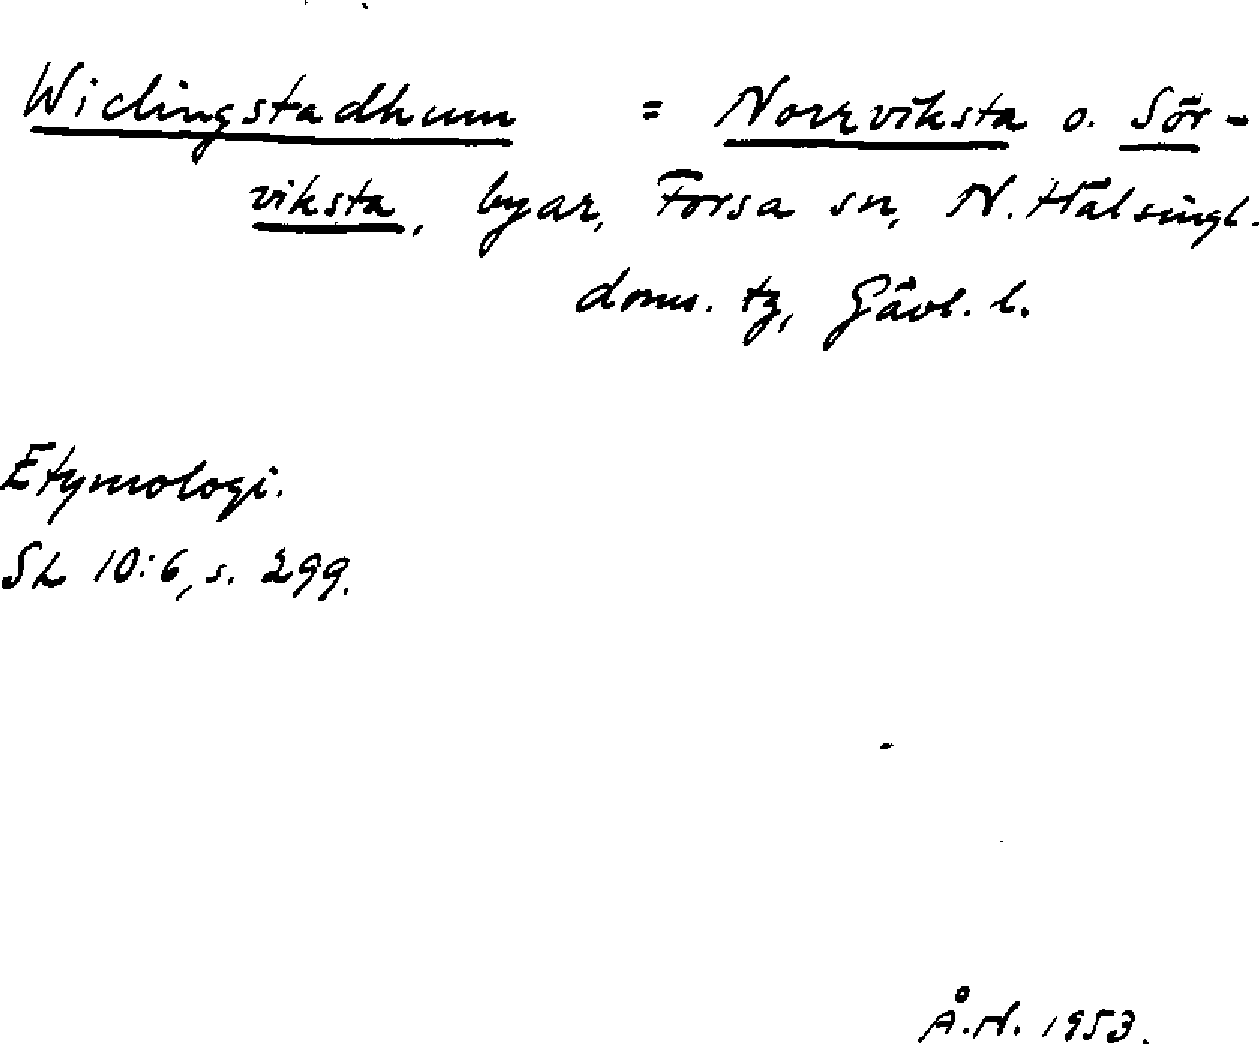 Widingstadhum = Norrviksta o. Sör-
viksta, byar, Forsa sn, N. Hälsingl.
doms. tg, Gävl. l.
Etymologi.
SL 10:6, s. 299.
Å.N. 1953.